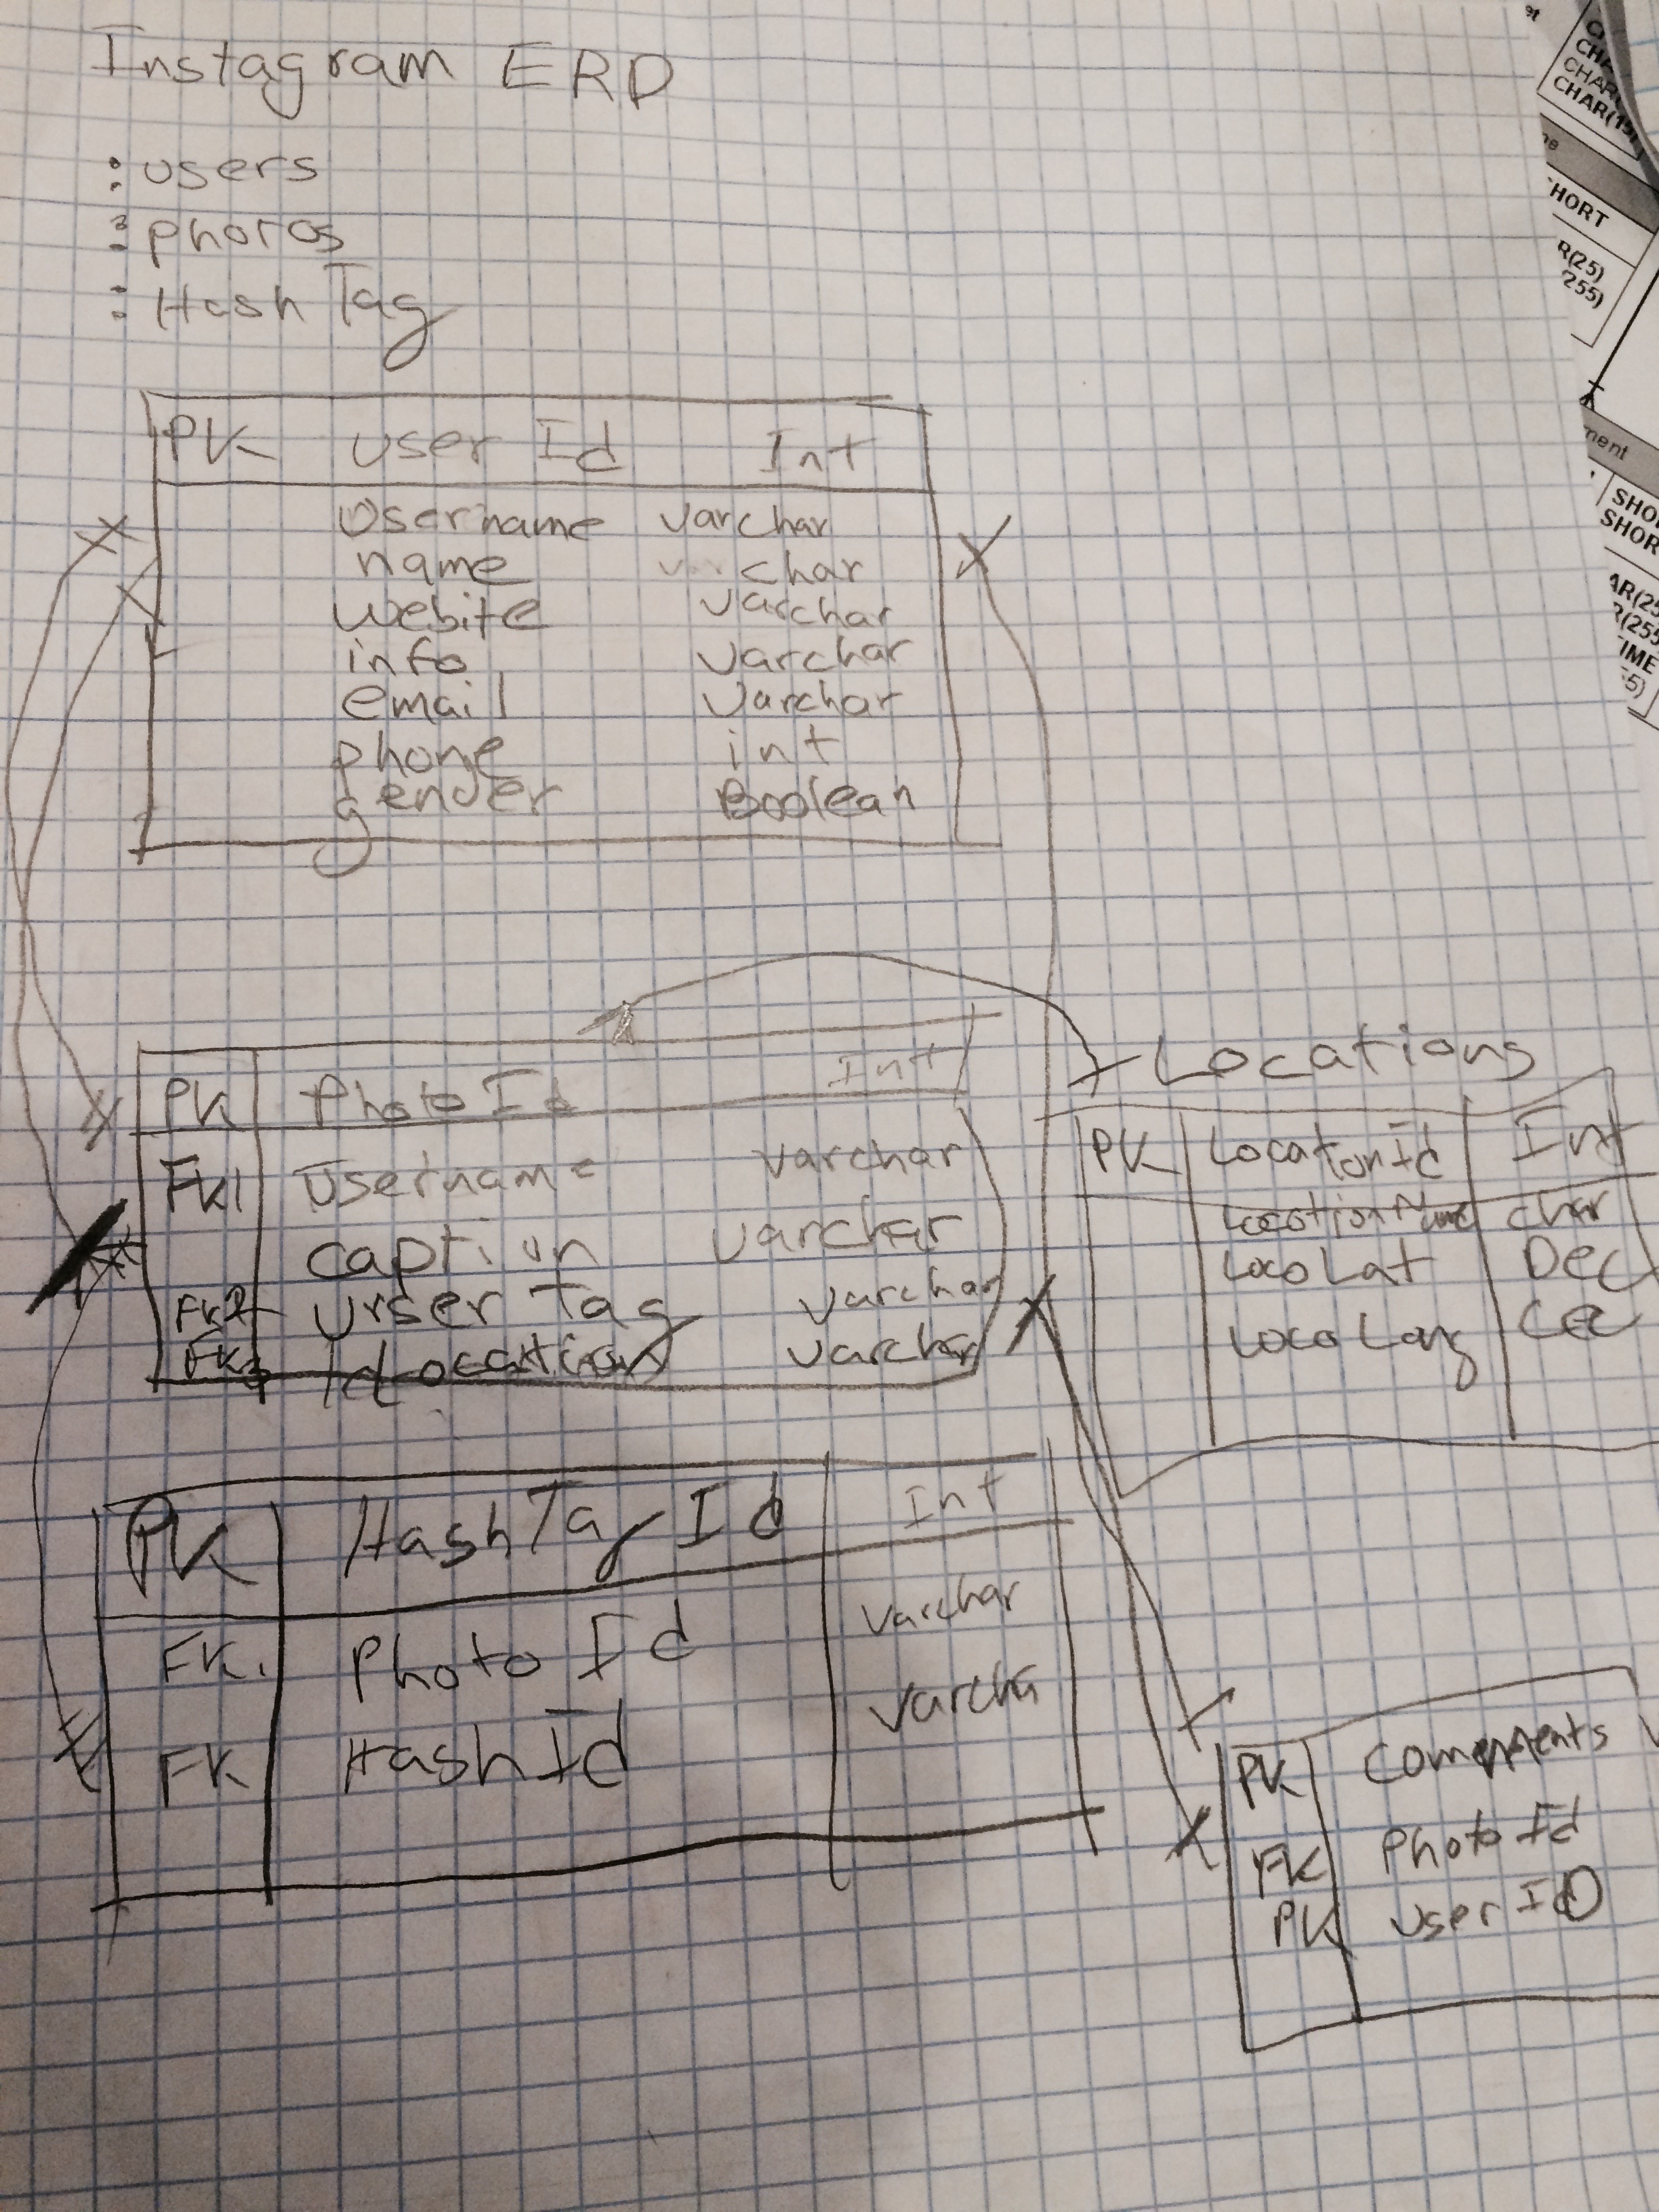 Instagram ERD
: users
: photos
: Hash Tag
PK user Id Int
Username varchar
name char
webite varchar
info varchar
email varchar
phone int
gender Boolean
PK Photo Id Int
FK1 Username varchar
caption varchar
FK2 Urser Tag varchar
FK3 IdLocation varchar
Locations
PK LocationId Int
Location Name char
Loco Lat Dec
Loco Long
PK HashTag Id Int
FK. Photo Id varchar
FK Hash Id varcha
PK Comments
FK Photo Id
PK User ID
CHAR(15)
HORT
R(25)
255)
ment
SHO
SHOR
AR(25
R(255
IME